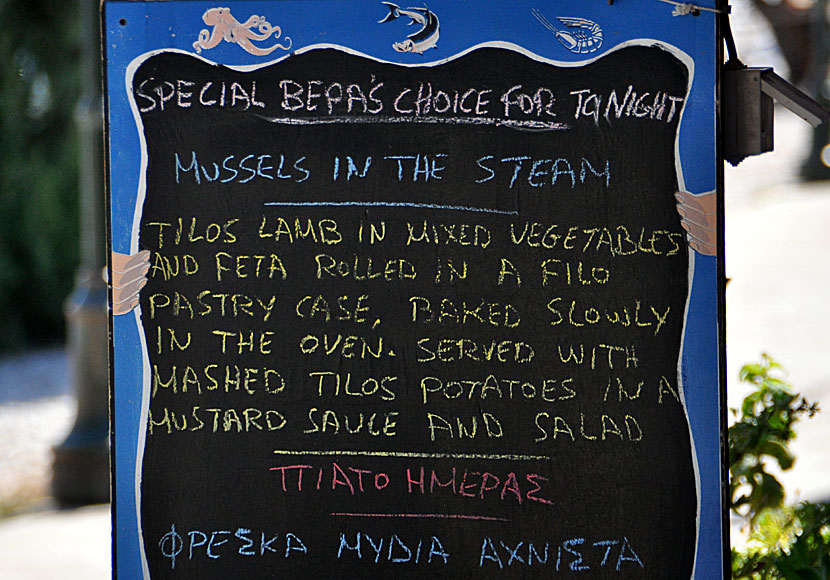 SPECIAL ΒΕΡΑ'S CHOICE FOR TONIGHT
MUSSELS IN THE STEAM
TILOS LAMB IN MIXED VEGETABLES
AND FETA ROLLED IN A FILO
PASTRY CASE, BAKED SLOWLY
IN THE OVEN. SERVED WITH
MASHED TILOS POTATOES IN A
MUSTARD SAUCE AND SALAD
ΠΙΑΤΟ ΗΜΕΡΑΣ
ΦΡΕΣΚΑ ΜΥΔΙΑ ΑΧΝΙΣΤΑ